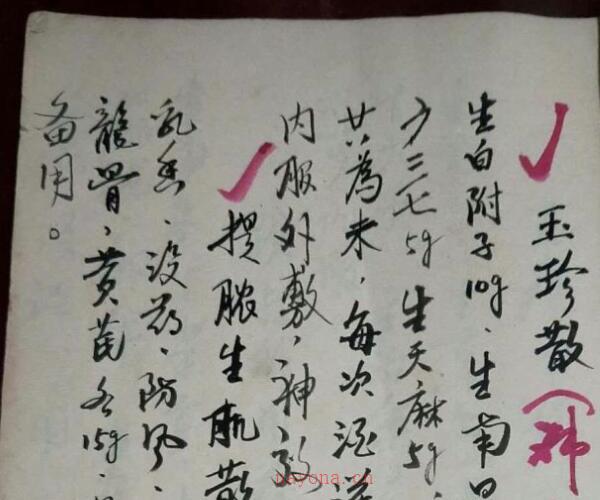 玉珍散(
生白附子10g、生南
少三七5g生天麻5g、
共為末,每次酒
内服外敷,神
提脓生肌散
乳香、没药、防风、
龍骨、黄芪各15g、
备用。
nayona.cn